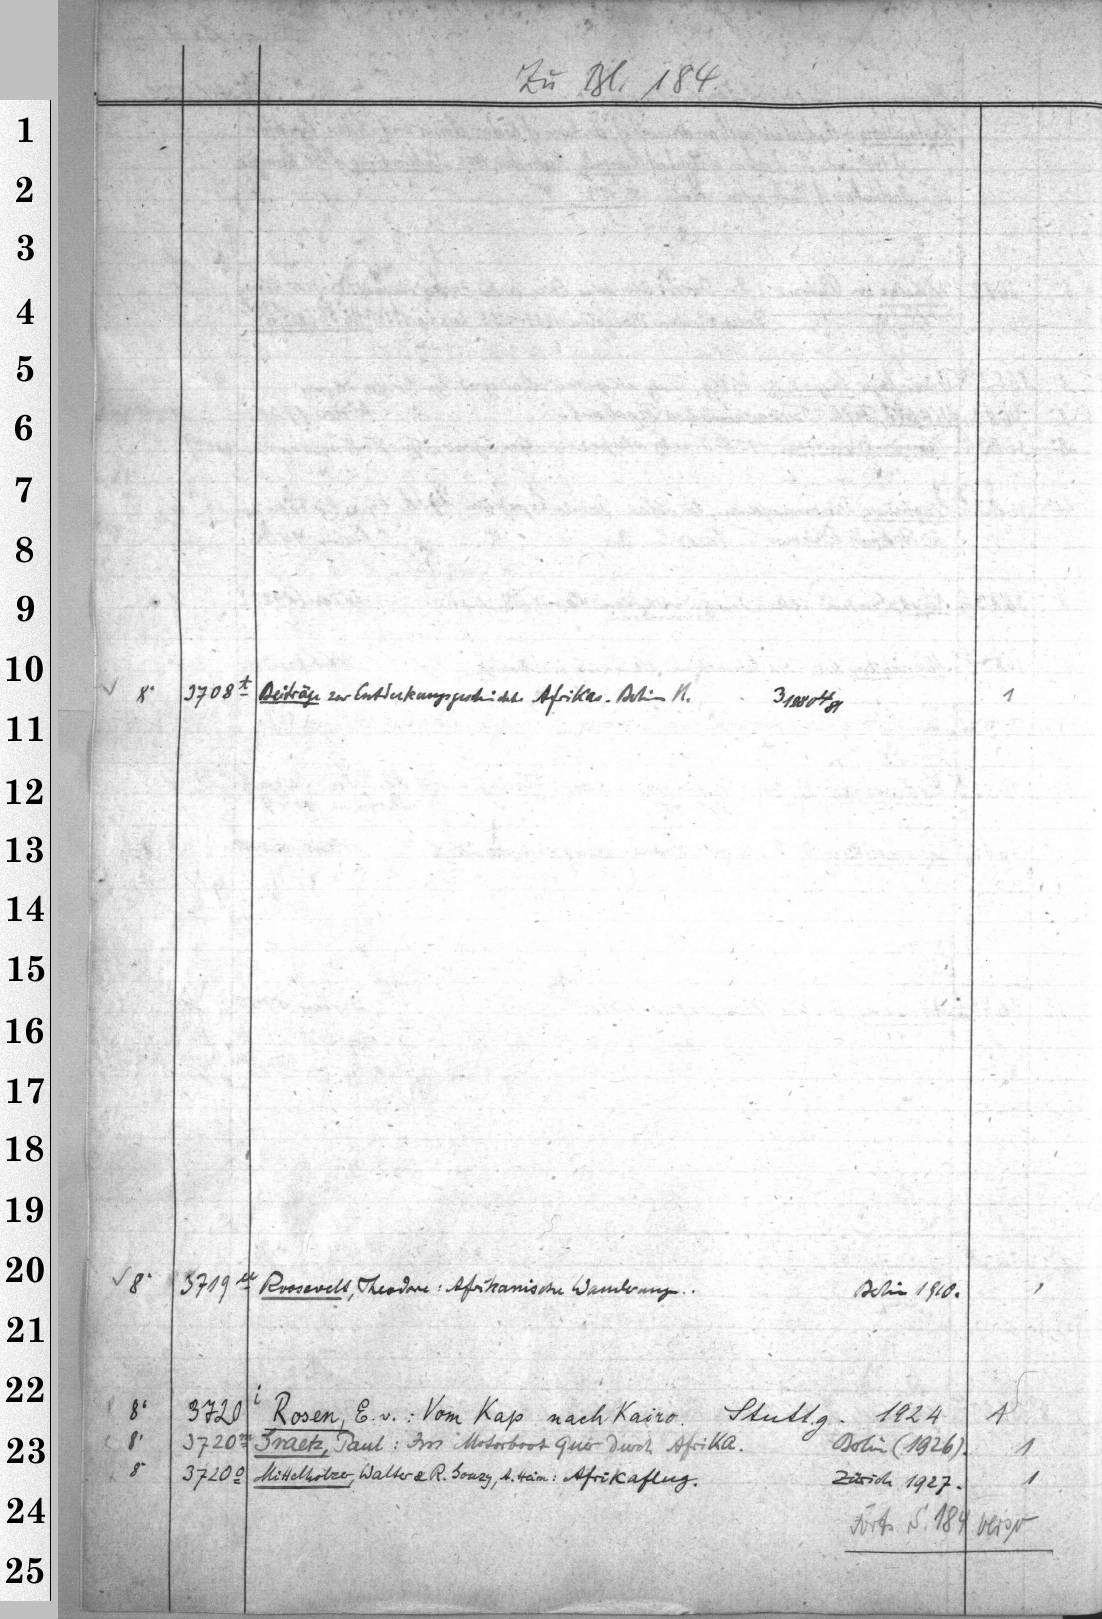 Zu Bl. 184.
1
2
3
4
5
6
7
8
9
10
8° 3708 t Beiträge zur Entdeckungsgeschichte Afrikas. Berlin H. 3 1880/81 1
11
12
13
14
15
16
17
18
19
20
8° 3719 Roosevelt, Theodore: Afrikanische Wanderung.. Berlin 1910. 1
21
22
8° 3720 i Rosen, E. v. : Vom Kap nach Kairo. Stuttg. 1924 1
23
8° 3720 m Graetz, Paul: Im Motorboot quer durch Afrika. Berlin (1926). 1
8° 3720 o Mittelholzer, Walter & R. Gouzy, A. Heim: Afrikaflug. Zürich 1927. 1
24
Forts S. 184
25